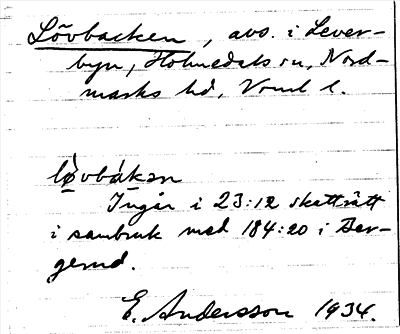 Lövbacken, avs. i Lever-
byn, Holmedals sn, Nord-
marks hd, Vrml l.
lǫvbákən
Ingår i 23:12 skatträtt
i sambruk med 184:20 i Ber-
gerud.
E. Andersson 1934.